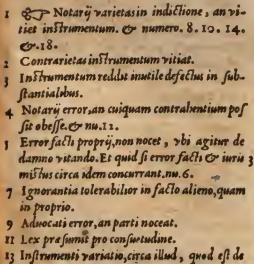 1 ☞ Notarij varietas in indictione, an vi-
tiet instrumentum. & numero. 8. 10. 14.
&. 18.
2 Contrarietas instrumentum vitiat.
3 Instrumentum reddit inutile defectus in sub-
stantialibus.
4 Notarij error, an cuiquam contrahentium pos
sit obesse. & nu. 12.
5 Error facti proprij, non nocet, vbi agitur de
damno vitando. Et quid si error facti & iuris 3
mistus circa idem concurrant. nu. 6.
7 Ignorantia tolerabilior in facto alieno, quam
in proprio.
9 Aduocati error, an parti noceat.
11 Lex præsumit pro consuetudine.
13 Instrumenti variatio, circa illud, quod est de